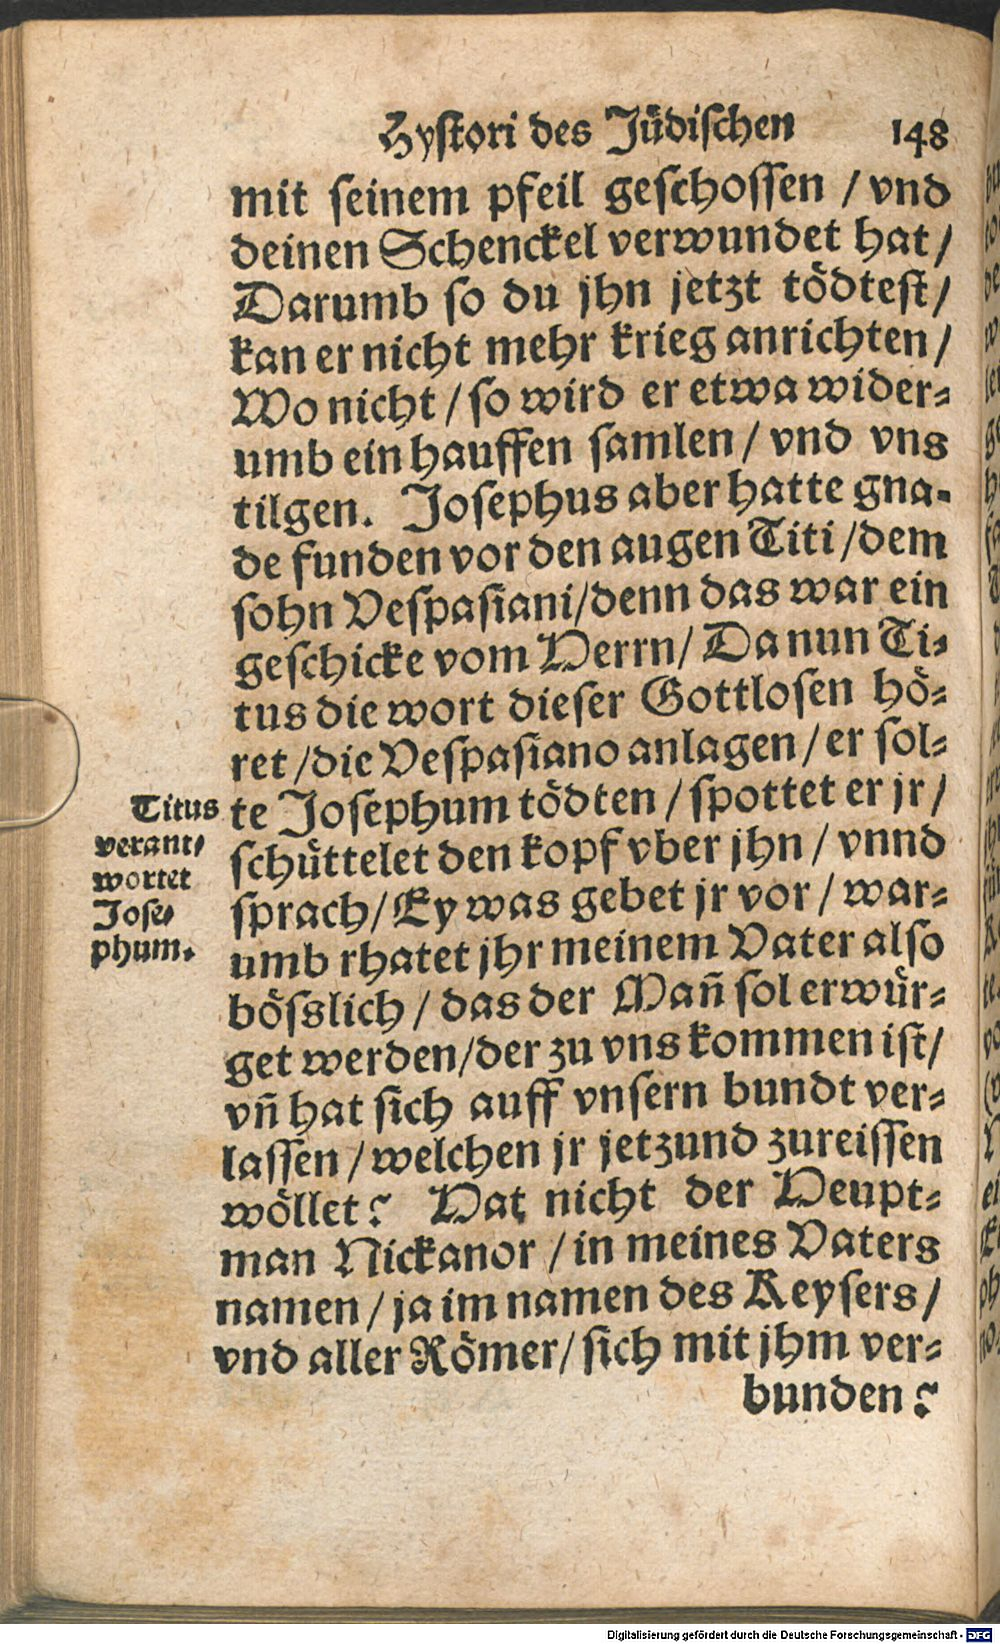 Hystori des Jüdischen 148
mit seinem pfeil geschossen / vnd
deinen Schenckel verwundet hat /
Darumb so du jhn jetzt tödtest /
kan er nicht mehr krieg anrichten /
Wo nicht / so wird er etwa wider-
umb ein hauffen samlen / vnd vns
tilgen. Josephus aber hatte gna-
de funden vor den augen Titi / dem
sohn Vespasiani / denn das war ein
geschicke vom Herrn / Da nun Ti-
tus die wort dieser Gottlosen hö-
ret / die Vespasiano anlagen / er sol-
te Josephum tödten / spottet er jr /
schüttelet den kopf vber jhn / vnnd
sprach / Ey was gebet jr vor / war-
umb rhatet jhr meinem Vater also
bösslich / das der Mañ sol erwür-
get werden / der zu vns kommen ist /
vñ hat sich auff vnsern bundt ver-
lassen / welchen jr jetzund zureissen
wöllet? Hat nicht der Heupt-
man Nickanor / in meines Vaters
namen / ja im namen des Keysers /
vnd aller Römer / sich mit jhm ver-
bunden?
Titus
verant-
wortet
Jose-
phum.
Digitalisierung gefördert durch die Deutsche Forschungsgemeinschaft - DFG